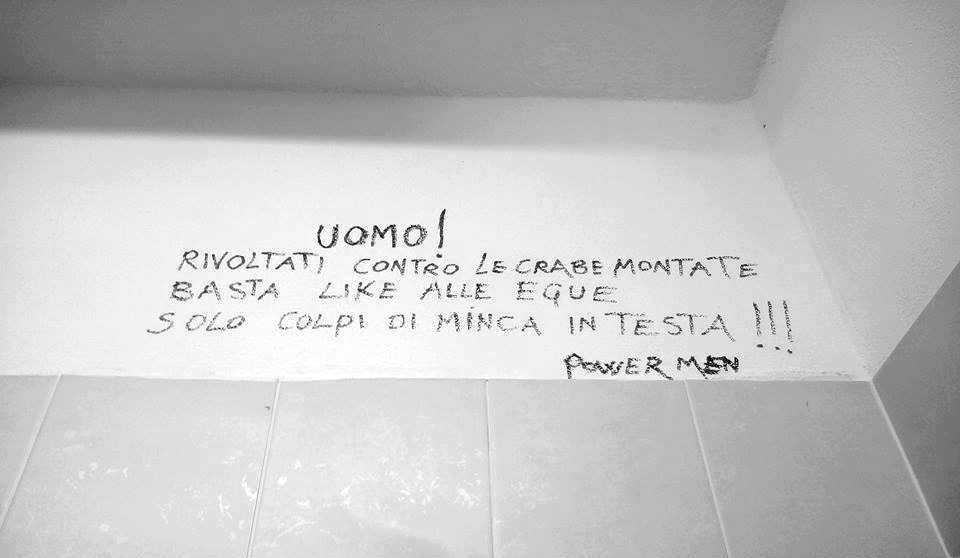 UOMO!
RIVOLTATI CONTRO LE CRABE MONTATE
BASTA LIKE ALLE EGUE
SOLO COLPI DI MINCA IN TESTA !!!
POWER MEN